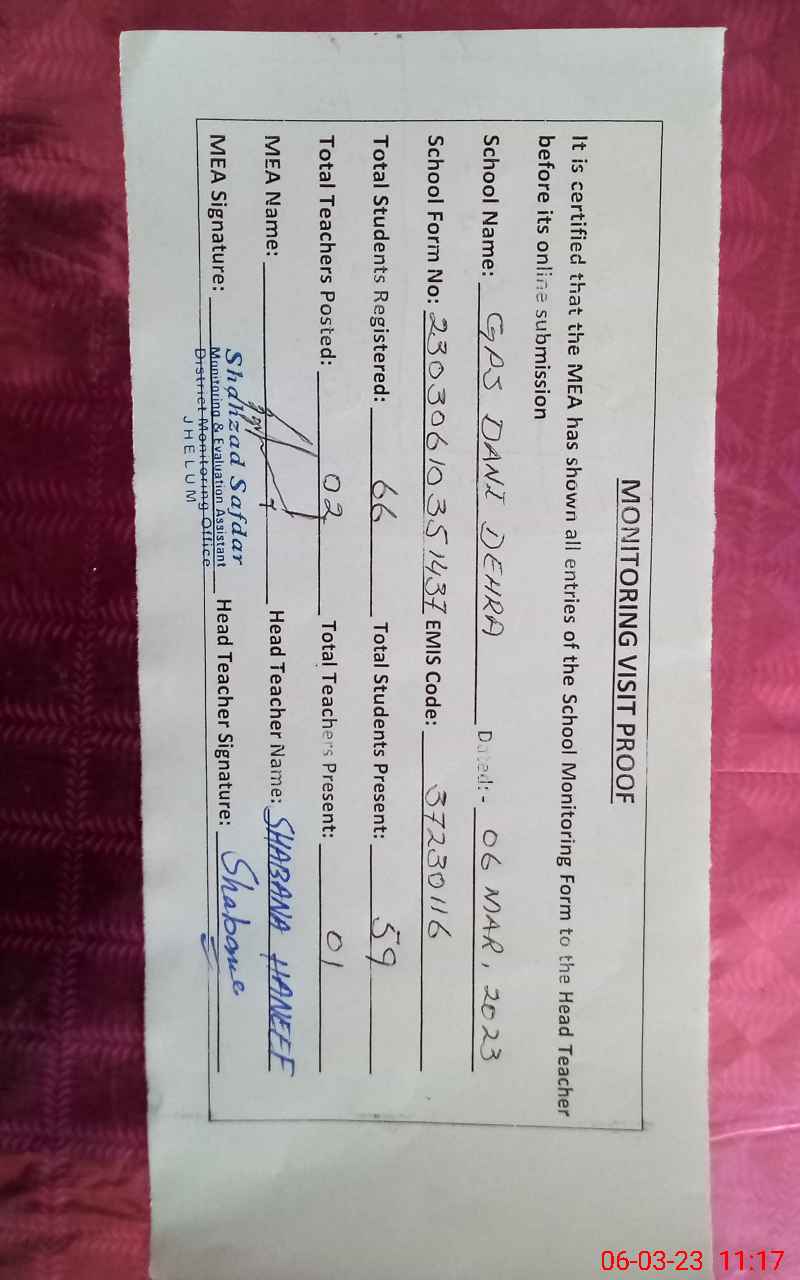 MONITORING VISIT PROOF
It is certified that the MEA has shown all entries of the School Monitoring Form to the Head Teacher
before its online submission
School Name: GPS DANI DEHRA Dated:- 06 MAR, 2023
School Form No: 23030610351437 EMIS Code: 37230116
Total Students Registered: 66 Total Students Present: 59
Total Teachers Posted: 02 Total Teachers Present: 01
MEA Name: Head Teacher Name: SHABANA HANEEF
MEA Signature: Head Teacher Signature: Shabana
Shahzad Safdar
Monitoring & Evaluation Assistant
District Monitoring Office
JHELUM
06-03-23 11:17